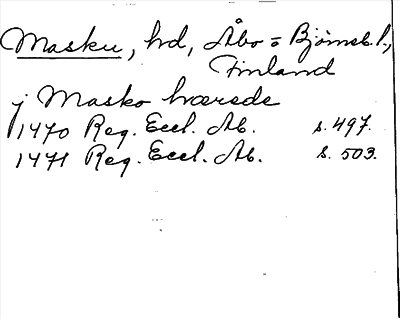 Masku, hd, Åbo = Björneb. l.,
Finland
j Masko hærede
1470 Reg. Eccl. Ab. s. 497.
1471 Reg. Eccl. Ab. s. 503.